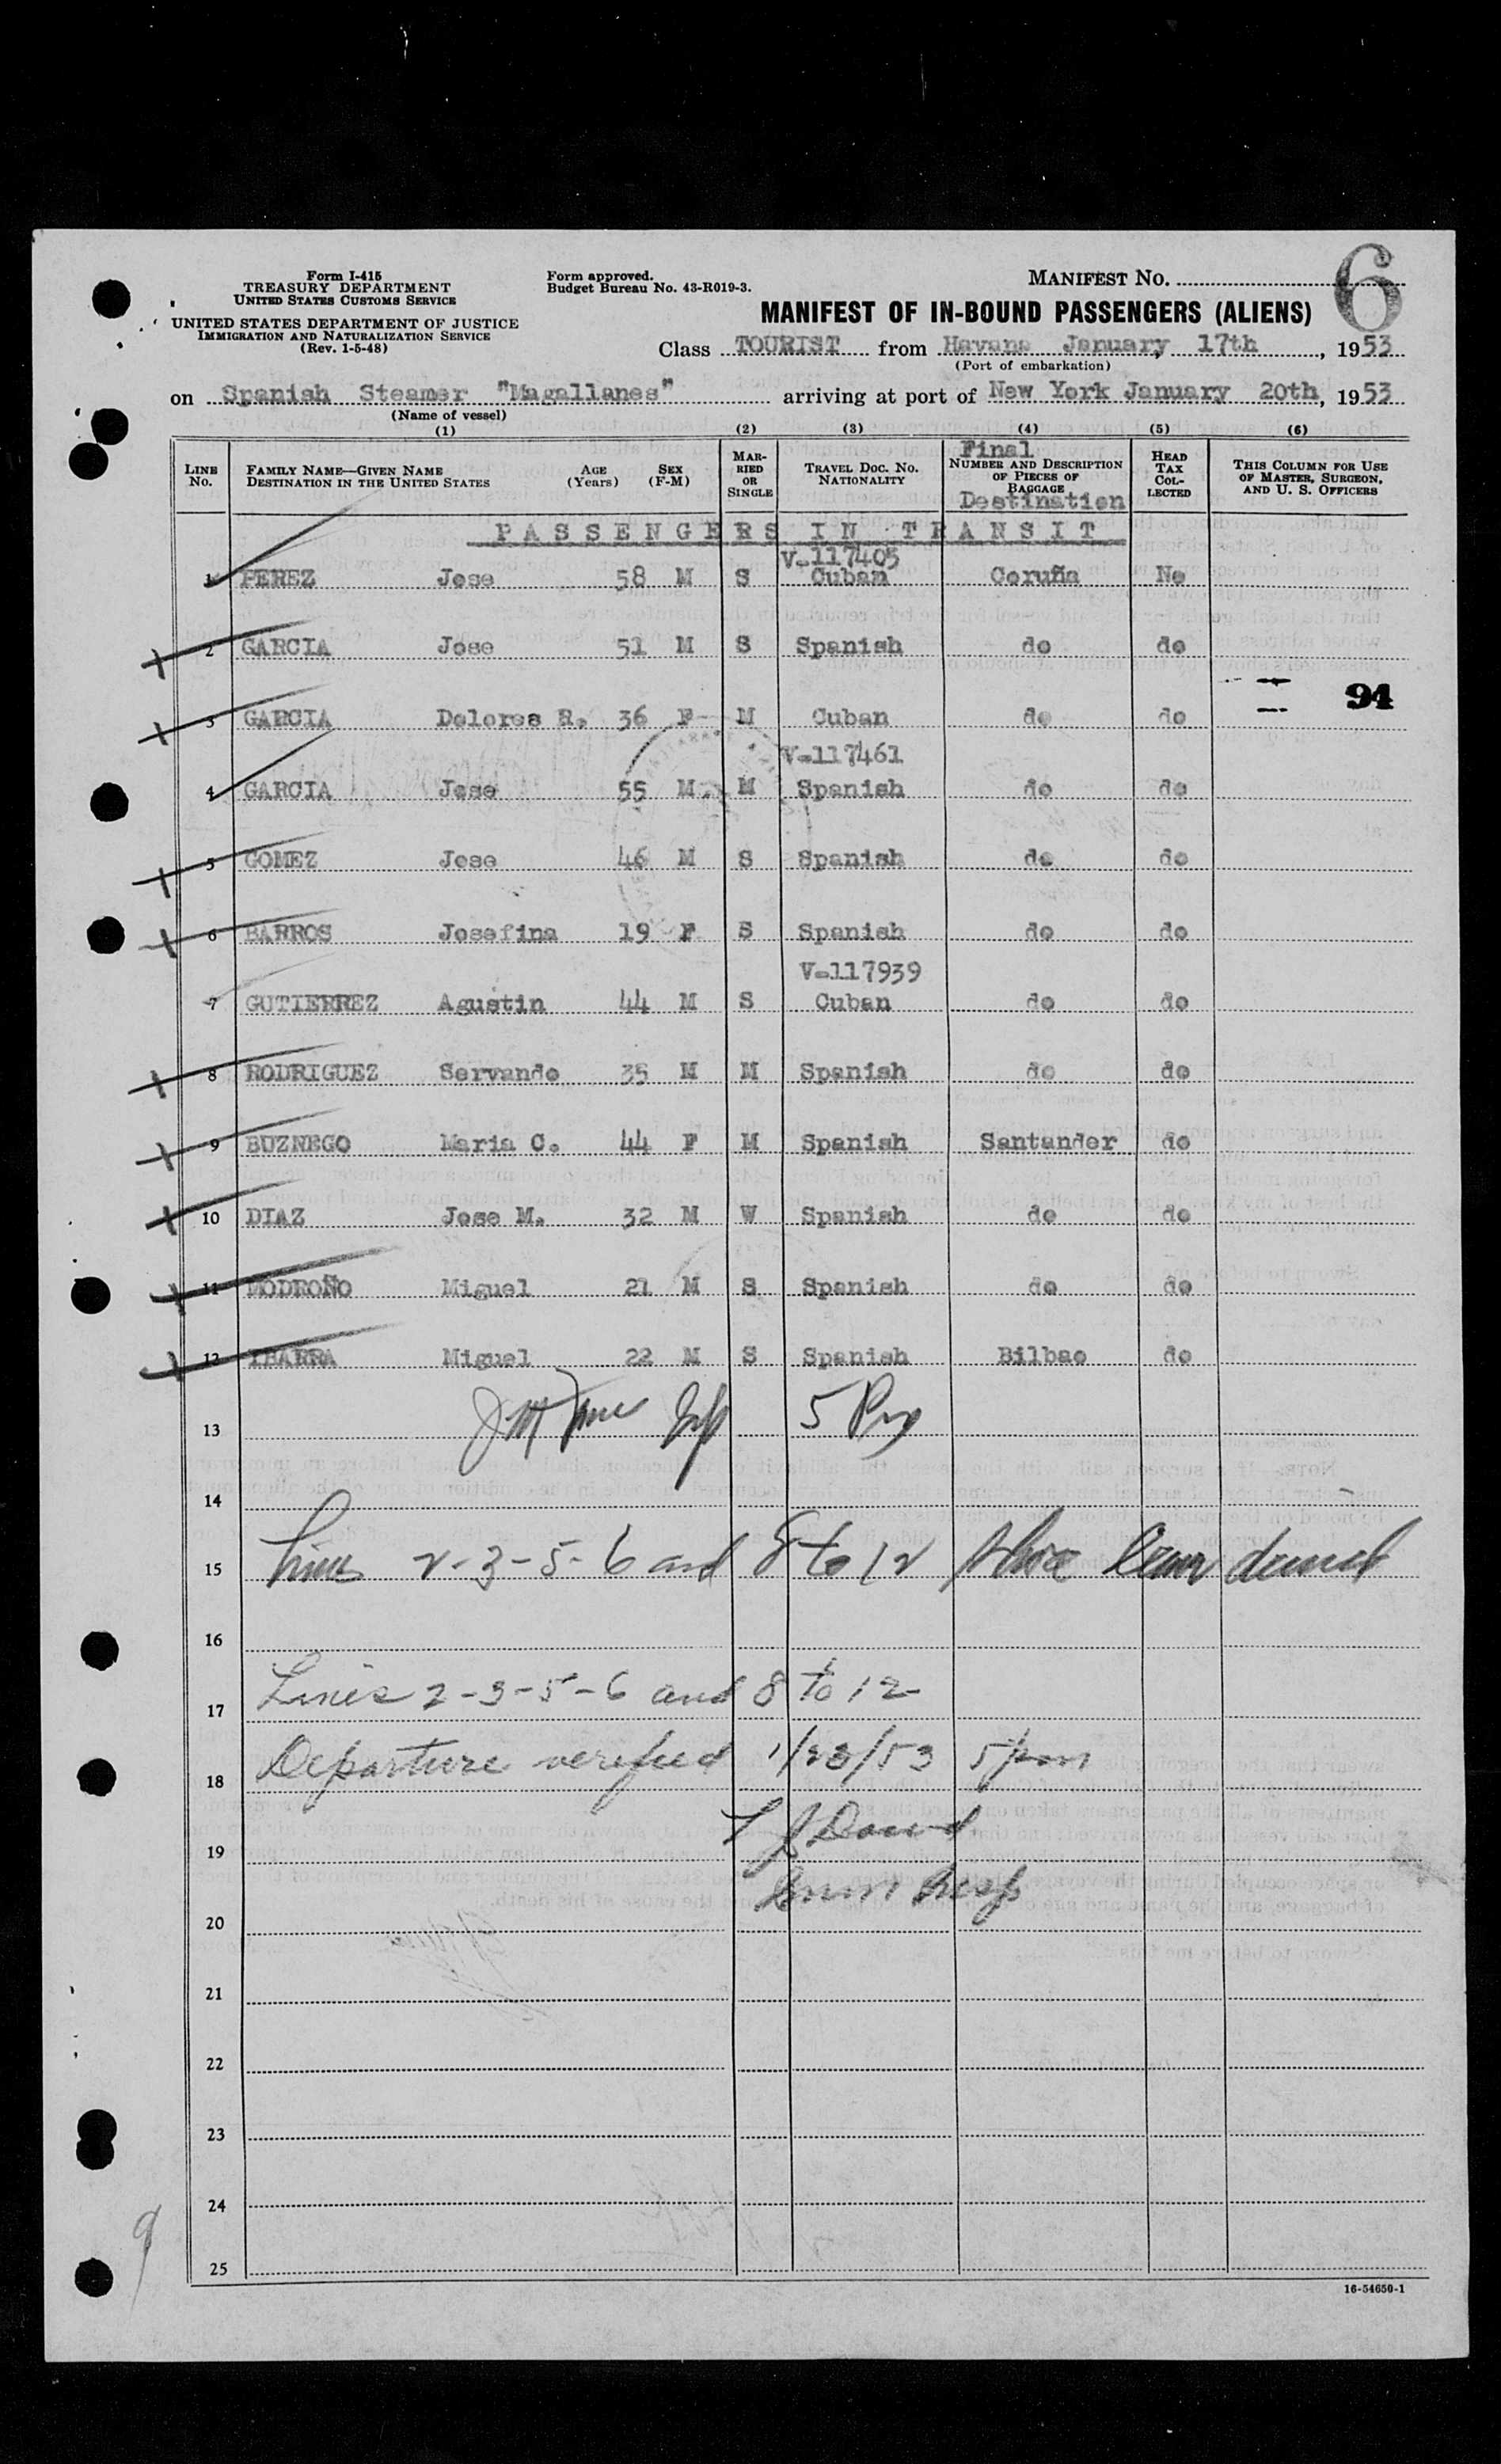 Form I-415
TREASURY DEPARTMENT
UNITED STATES CUSTOMS SERVICE
UNITED STATES DEPARTMENT OF JUSTICE
IMMIGRATION AND NATURALIZATION SERVICE
(Rev. 1-5-48)
Form approved.
Budget Bureau No. 43-R019-3.
MANIFEST No.
6
MANIFEST OF IN-BOUND PASSENGERS (ALIENS)
Class TOURIST from Havana January 17th, 1953
(Port of embarkation)
on Spanish Steamer "Magallanes" arriving at port of New York January 20th, 1953
(Name of vessel)
(1) (2) (3) (4) (5) (6)
LINE No. FAMILY NAME—GIVEN NAME DESTINATION IN THE UNITED STATES AGE (Years) SEX (F-M) MARRIED OR SINGLE TRAVEL DOC. No. NATIONALITY Final NUMBER AND DESCRIPTION OF PIECES OF BAGGAGE Destination HEAD TAX COLLECTED THIS COLUMN FOR USE OF MASTER, SURGEON, AND U. S. OFFICERS
PASSENGERS IN TRANSIT
V-117405
1 PEREZ Jose 58 M S Cuban Coruña No
2 GARCIA Jose 51 M S Spanish do do
94
3 GARCIA Dolores R. 36 F M Cuban do do
V-117461
4 GARCIA Jose 55 M M Spanish do do
5 GOMEZ Jose 46 M S Spanish do do
6 BARROS Josefina 19 F S Spanish do do
V-117939
7 GUTIERREZ Agustin 44 M S Cuban do do
8 RODRIGUEZ Servando 35 M M Spanish do do
9 BUZNEGO Maria C. 44 F M Spanish Santander do
10 DIAZ Jose M. 32 M W Spanish do do
11 MODROÑO Miguel 21 M S Spanish do do
12 IBARRA Miguel 22 M S Spanish Bilbao do
13
14
15 Lines 2-3-5-6 and 8 to 12 shore leave denied
16
17 Lines 2-3-5-6 and 8 to 12
18 Departure verified 1/23/53 5 pm
19
20
21
22
23
24
25
9
16-54650-1